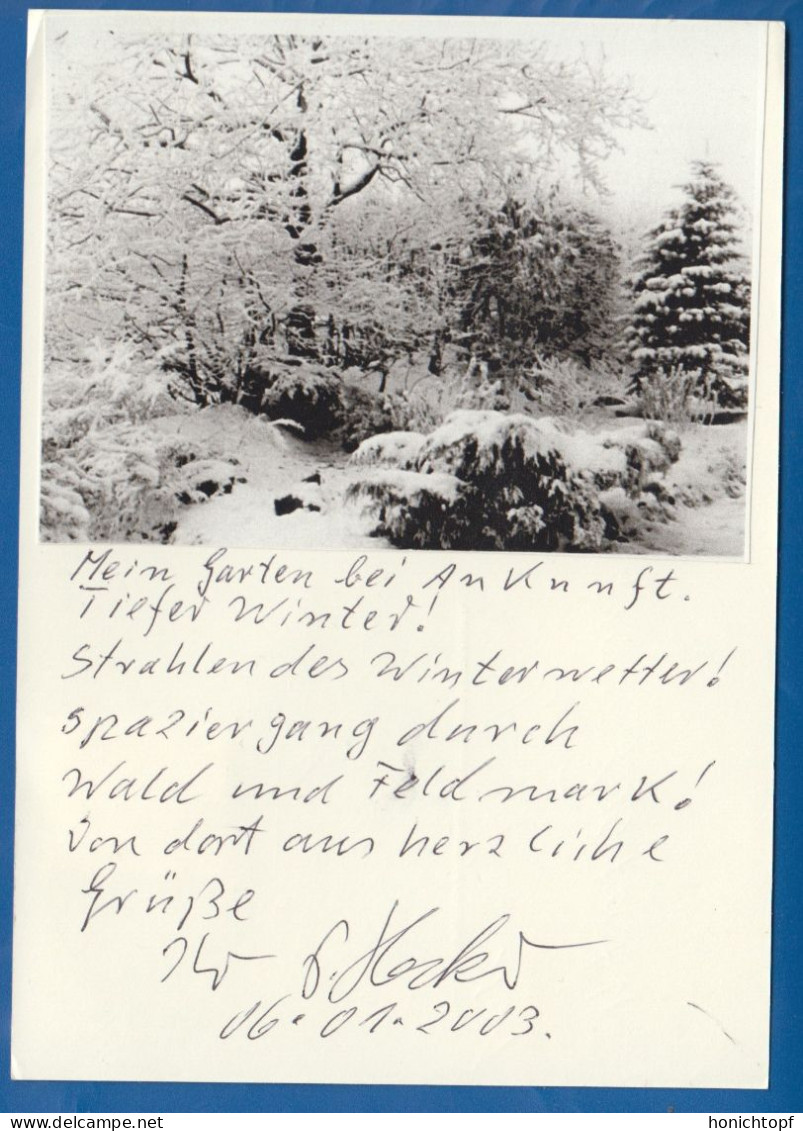 Mein Garten bei Ankunft.
Tiefer Winter!
Strahlendes Winterwetter!
Spaziergang durch
Wald und Feldmark!
Von dort aus herzliche
Grüße
Ihr
06.01.2003.
www.delcampe.net
honichtopf